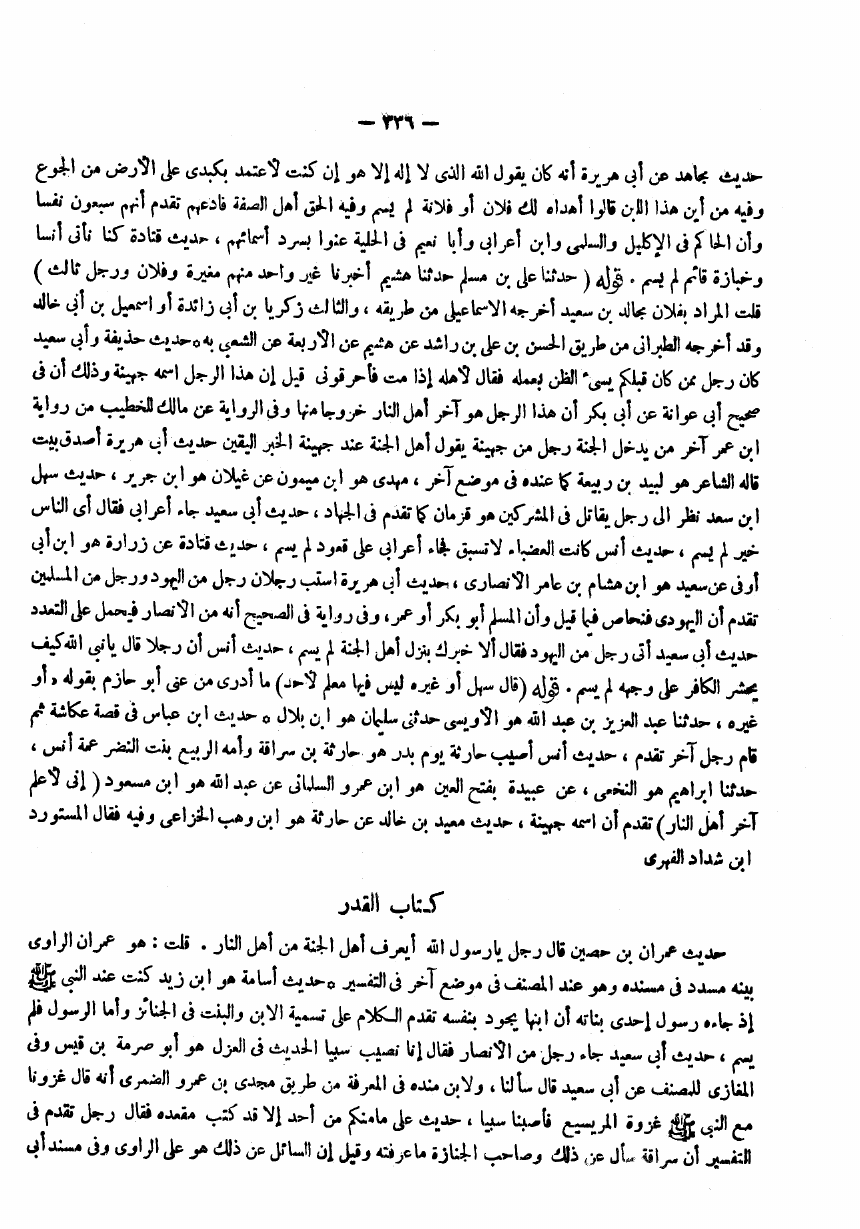 — ٣٣٦ —
حديث مجاهد عن أبى هريرة أنه كان يقول الله الذى لا إله إلا هو إن كنت لأعتمد بكبدى على الأرض من الجوع
وفيه من أين هذا اللبن قالوا أهداه لك فلان أو فلانة لم يسم وفيه الحق أهل الصفة فادعهم تقدم أنهم سبعون نفسا
وأن الحاكم فى الإكليل والسلمى وابن أعرابى وأبا نعيم فى الحلية عنوا بسرد أسمائهم ، حديث قتادة كنا نأتى أنسا
وخبازه قائم لم يسم . قوله ( حدثنا على بن مسلم حدثنا هشيم أخبرنا غير واحد منهم مغيرة وفلان ورجل ثالث )
قلت المراد بفلان مجالد بن سعيد أخرجه الاسماعيلى من طريقه ، والثالث زكريا بن أبى زائدة أو اسمعيل بن أبى خالد
وقد أخرجه الطبرانى من طريق الحسن بن على بن راشد عن هشيم عن الأربعة عن الشعبى به ه حديث حذيفة وأبى سعيد
كان رجل ممن كان قبلكم يسىء الظن بعمله فقال لأهله إذا مت فأحرقونى قيل إن هذا الرجل اسمه جهينة وذلك أن فى
صحيح أبى عوانة عن أبى بكر أن هذا الرجل هو آخر أهل النار خروجا منها وفى الرواية عن مالك للخطيب من رواية
ابن عمر آخر من يدخل الجنة رجل من جهينة يقول أهل الجنة عند جهينة الخبر اليقين حديث أبى هريرة أصدق بيت
قاله الشاعر هو لبيد بن ربيعة كما عنده فى موضع آخر ، مهدى هو ابن ميمون عن غيلان هو ابن جرير ، حديث سهل
ابن سعد نظر الى رجل يقاتل فى المشركين هو قزمان كما تقدم فى الجهاد ، حديث أبى سعيد جاء أعرابى فقال أى الناس
خير لم يسم ، حديث أنس كانت العضباء لا تسبق فجاء أعرابى على قعود لم يسم ، حديث قتادة عن زرارة هو ابن أبى
أوفى عن سعيد هو ابن هشام بن عامر الأنصارى ، حديث أبى هريرة استب رجلان رجل من اليهود ورجل من المسلمين
تقدم أن اليهودى فنحاص فيما قيل وأن المسلم أبو بكر أو عمر ، وفى رواية فى الصحيح أنه من الأنصار فيحمل على التعدد
حديث أبى سعيد أتى رجل من اليهود فقال ألا خبرك بنزل أهل الجنة لم يسم ، حديث أنس أن رجلا قال يانبى الله كيف
يحشر الكافر على وجهه لم يسم . قوله (قال سهل أو غيره ليس فيها معلم لأحد) ما أدرى من عنى أبو حازم بقوله ، أو
غيره ، حدثنا عبد العزيز بن عبد الله هو الأويسى حدثنى سليمان هو ابن بلال ه حديث ابن عباس فى قصة عكاشة ثم
قام رجل آخر تقدم ، حديث أنس أصيب حارثة يوم بدر هو حارثة بن سراقة وأمه الربيع بنت النضر عمة أنس ،
حدثنا ابراهيم هو النخعى ، عن عبيدة بفتح العين هو ابن عمرو السلمانى عن عبد الله هو ابن مسعود ( إنى لأعلم
آخر أهل النار) تقدم أن اسمه جهينة ، حديث معبد بن خالد عن حارثة هو ابن وهب الخزاعى وفيه فقال المستورد
ابن شداد الفهرى
كتاب القدر
حديث عمران بن حصين قال رجل يارسول الله أيعرف أهل الجنة من أهل النار . قلت : هو عمران الراوى
بينه مسدد فى مسنده وهو عند المصنف فى موضع آخر فى التفسير ه حديث أسامة هو ابن زيد كنت عند النبى ﷺ
إذ جاءه رسول إحدى بناته أن ابنها يجود بنفسه تقدم الكلام على تسمية الابن والبنت فى الجنائز وأما الرسول فلم
يسم ، حديث أبى سعيد جاء رجل من الأنصار فقال إنا نصيب سبيا الحديث فى العزل هو أبو صرمة بن قيس وفى
المغازى للمصنف عن أبى سعيد قال سألنا ، ولابن منده فى المعرفة من طريق مجدى بن عمرو الضمرى أنه قال غزونا
مع النبى ﷺ غزوة المريسيع فأصبنا سبيا ، حديث على مامنكم من أحد إلا قد كتب مقعده فقال رجل تقدم فى
التفسير أن سراقة سأل عن ذلك وصاحب الجنازة ماعرفته وقيل إن السائل عن ذلك هو على الراوى وفى مسند أبى